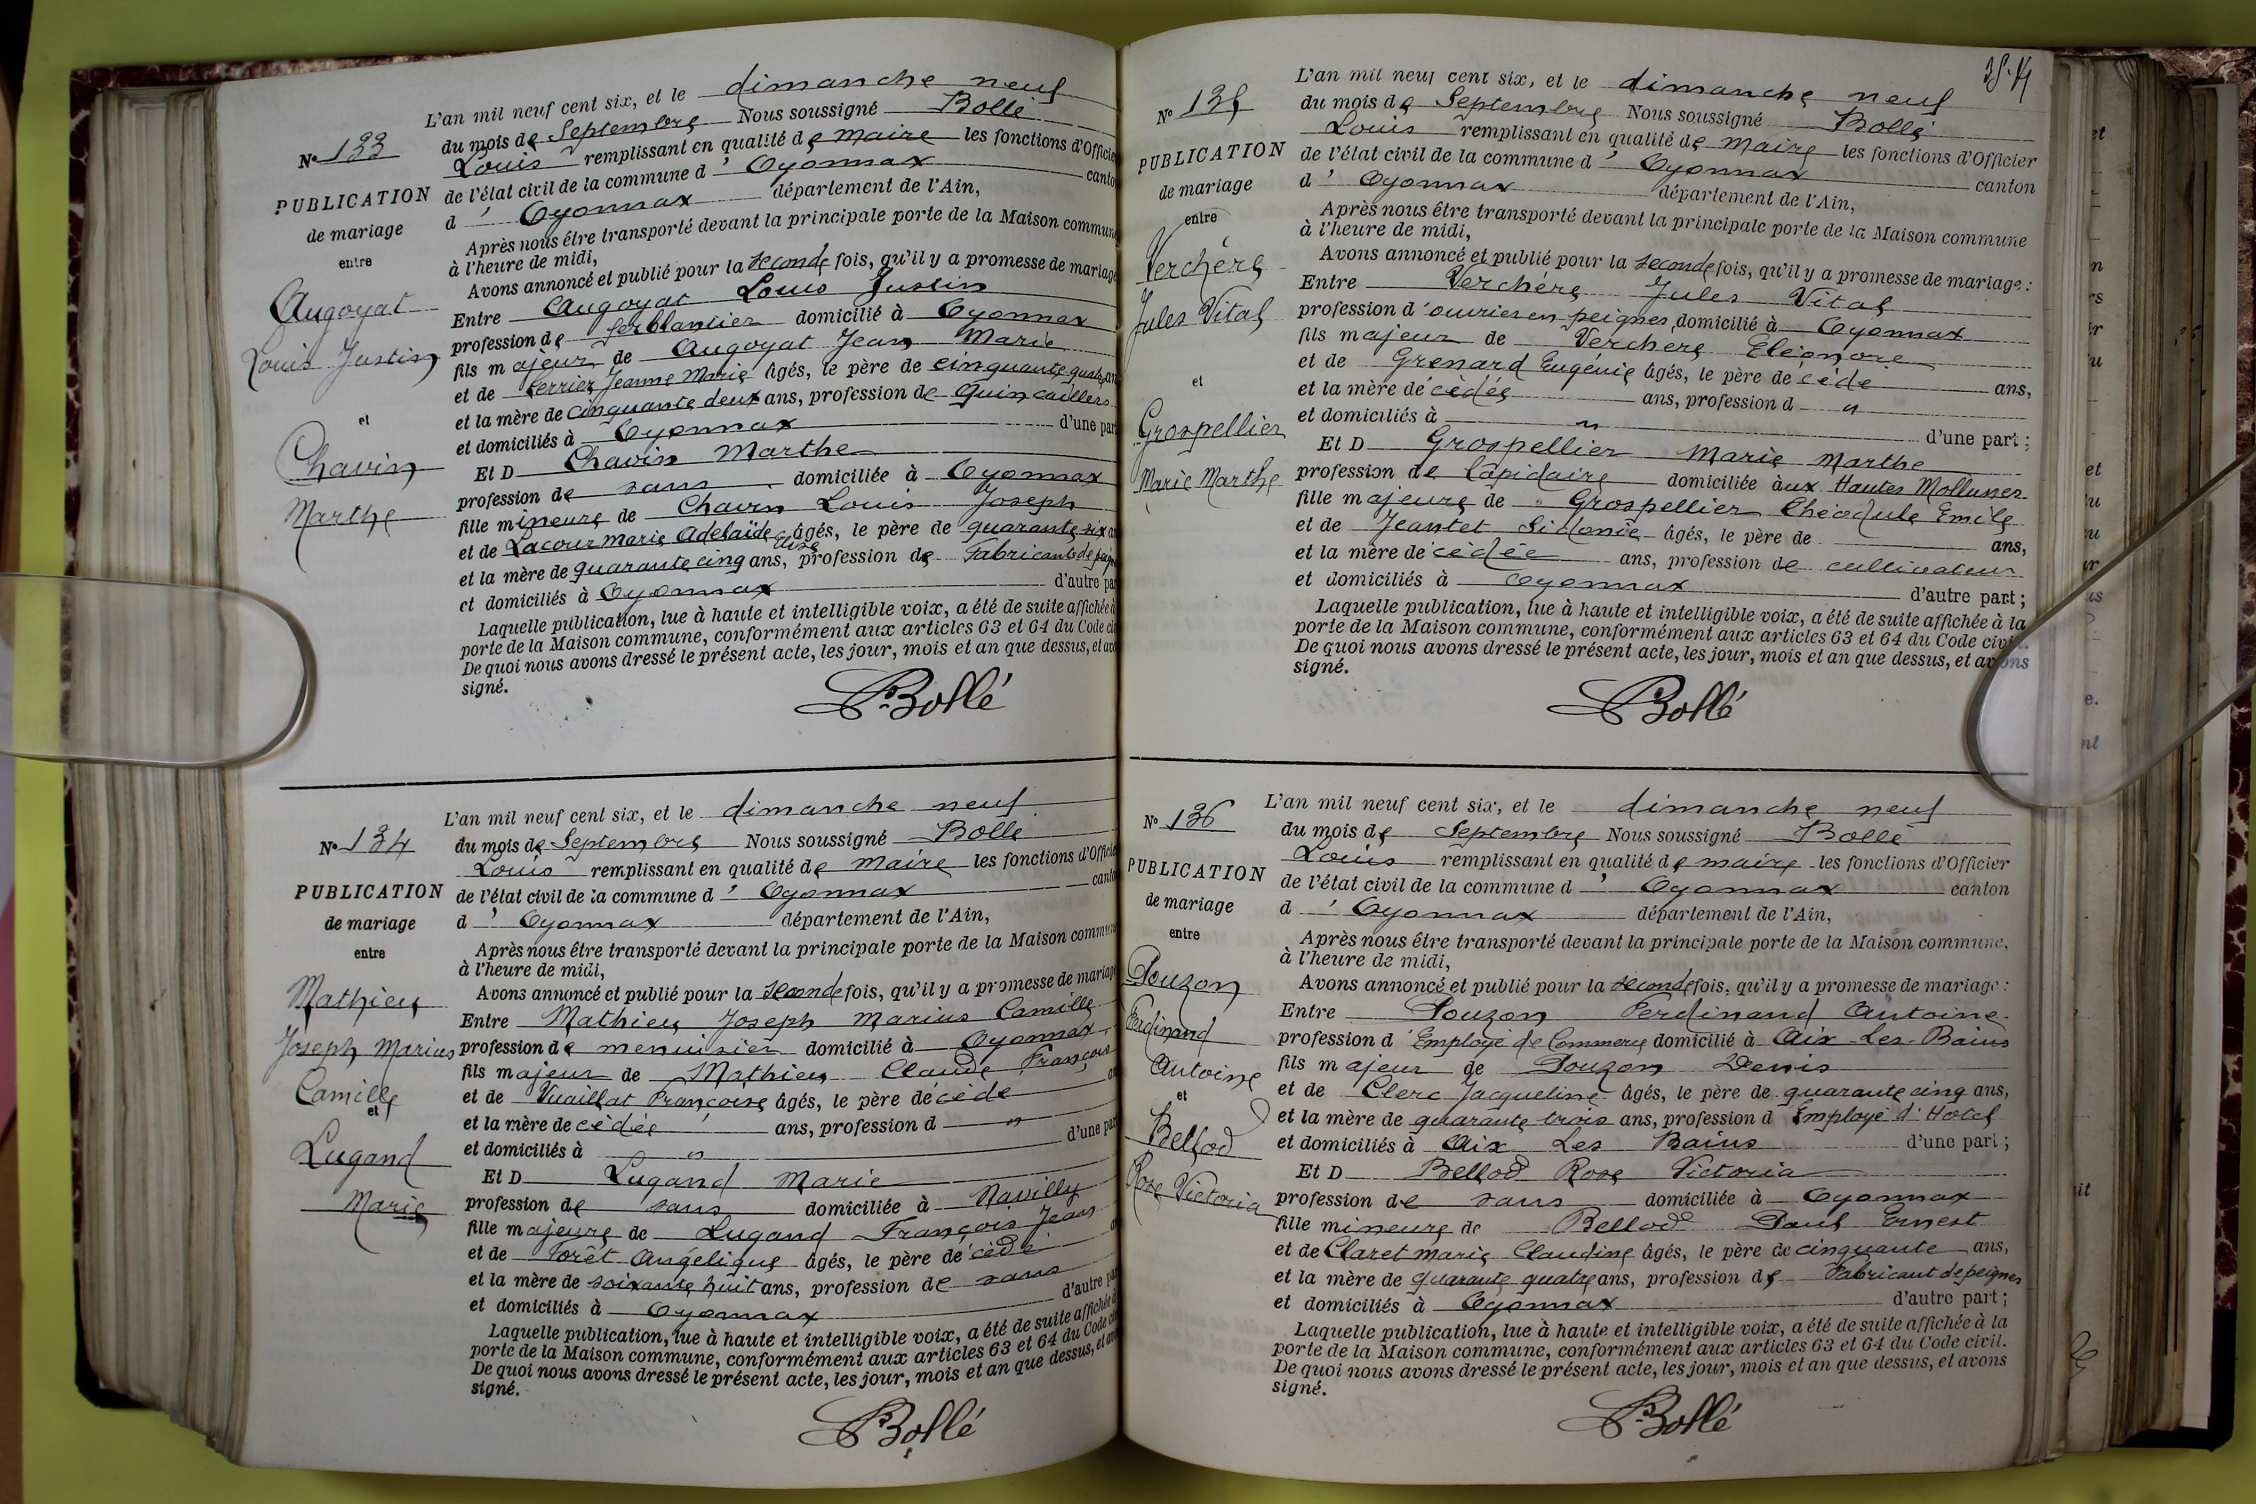 L'an mil neuf cent six, et le dimanche neuf
du mois de Septembre Nous soussigné Bollé
Louis remplissant en qualité de maire les fonctions d'Officier
N° 133
PUBLICATION
de mariage
entre
Augoyat
Louis Justin
et
Chavin
Marthe
de l'état civil de la commune d' Oyonnax canton
d' Oyonnax département de l'Ain,
Après nous être transporté devant la principale porte de la Maison commune
à l'heure de midi,
Avons annoncé et publié pour la seconde fois, qu'il y a promesse de mariage
Entre Augoyat Louis Justin
profession de ferblantier domicilié à Oyonnax
fils majeur de Augoyat Jean Marie
et de Perrier Jeanne Marie âgés, le père de cinquante quatre ans
et la mère de cinquante deux ans, profession de Quincaillers
et domiciliés à Oyonnax d'une part
Et D Chavin Marthe
profession de sans domiciliée à Oyonnax
fille mineure de Chavin Louis Joseph
et de Lacour Marie Adelaïde Elise âgés, le père de quarante six ans
et la mère de quarante cinq ans, profession de Fabricants de peignes
et domiciliés à Oyonnax d'autre part
Laquelle publication, lue à haute et intelligible voix, a été de suite affichée à
porte de la Maison commune, conformément aux articles 63 et 64 du Code civil
De quoi nous avons dressé le présent acte, les jour, mois et an que dessus, et avons
signé.
Bollé
N° 134
PUBLICATION
de mariage
entre
Mathieu
Joseph Marius
Camille
et
Lugand
Marie
L'an mil neuf cent six, et le dimanche neuf
du mois de Septembre Nous soussigné Bollé
Louis remplissant en qualité de maire les fonctions d'Officier
de l'état civil de la commune d' Oyonnax canton
d' Oyonnax département de l'Ain,
Après nous être transporté devant la principale porte de la Maison commune
à l'heure de midi,
Avons annoncé et publié pour la seconde fois, qu'il y a promesse de mariage
Entre Mathieu Joseph Marius Camille
profession de menuisier domicilié à Oyonnax
fils majeur de Mathieu Claude François
et de Vuaillat Françoise âgés, le père décédé ans
et la mère décédée ans, profession d "
et domiciliés à " d'une part
Et D Lugand Marie
profession de sans domiciliée à Navilly
fille majeure de Lugand François Jean
et de Forêt Angélique âgés, le père de cédé ans
et la mère de soixante huit ans, profession de sans
et domiciliés à Oyonnax d'autre part
Laquelle publication, lue à haute et intelligible voix, a été de suite affichée à
porte de la Maison commune, conformément aux articles 63 et 64 du Code civil
De quoi nous avons dressé le présent acte, les jour, mois et an que dessus, et avons
signé.
Bollé
N° 135
PUBLICATION
de mariage
entre
Verchère
Jules Vital
et
Grospellier
Marie Marthe
L'an mil neuf cent six, et le dimanche neuf
du mois de Septembre Nous soussigné Bollé
Louis remplissant en qualité de maire les fonctions d'Officier
de l'état civil de la commune d' Oyonnax canton
d' Oyonnax département de l'Ain,
Après nous être transporté devant la principale porte de la Maison commune
à l'heure de midi,
Avons annoncé et publié pour la seconde fois, qu'il y a promesse de mariage :
Entre Verchère Jules Vital
profession d'ouvrier en peignes domicilié à Oyonnax
fils majeur de Verchère Eléonore
et de Grenard Eugénie âgés, le père décédé ans,
et la mère décédée ans, profession d "
et domiciliés à " d'une part ;
Et D Grospellier Marie Marthe
profession de lapidaire domiciliée aux Hautes Mollunes
fille majeure de Grospellier Théodule Emile
et de Jeantet Sidonie âgés, le père de ans,
et la mère décédée ans, profession de cultivateur
et domiciliés à Oyonnax d'autre part ;
Laquelle publication, lue à haute et intelligible voix, a été de suite affichée à la
porte de la Maison commune, conformément aux articles 63 et 64 du Code civil.
De quoi nous avons dressé le présent acte, les jour, mois et an que dessus, et avons
signé.
Bollé
N° 136
PUBLICATION
de mariage
entre
Douzon
Ferdinand
Antoine
et
Bellod
Rose Victoria
L'an mil neuf cent six, et le dimanche neuf
du mois de Septembre Nous soussigné Bollé
Louis remplissant en qualité de maire les fonctions d'Officier
de l'état civil de la commune d' Oyonnax canton
d' Oyonnax département de l'Ain,
Après nous être transporté devant la principale porte de la Maison commune,
à l'heure de midi,
Avons annoncé et publié pour la seconde fois, qu'il y a promesse de mariage :
Entre Douzon Ferdinand Antoine
profession d'Employé de Commerce domicilié à Aix-Les-Bains
fils majeur de Douzon Denis
et de Clerc Jacqueline âgés, le père de quarante cinq ans,
et la mère de quarante trois ans, profession d Employé d'Hotel
et domiciliés à Aix Les Bains d'une part ;
Et D Bellod Rose Victoria
profession de sans domiciliée à Oyonnax
fille mineure de Bellod Paul Ernest
et de Claret Marie Claudine âgés, le père de cinquante ans,
et la mère de quarante quatre ans, profession de Fabricant de peignes
et domiciliés à Oyonnax d'autre part ;
Laquelle publication, lue à haute et intelligible voix, a été de suite affichée à la
porte de la Maison commune, conformément aux articles 63 et 64 du Code civil.
De quoi nous avons dressé le présent acte, les jour, mois et an que dessus, et avons
signé.
Bollé